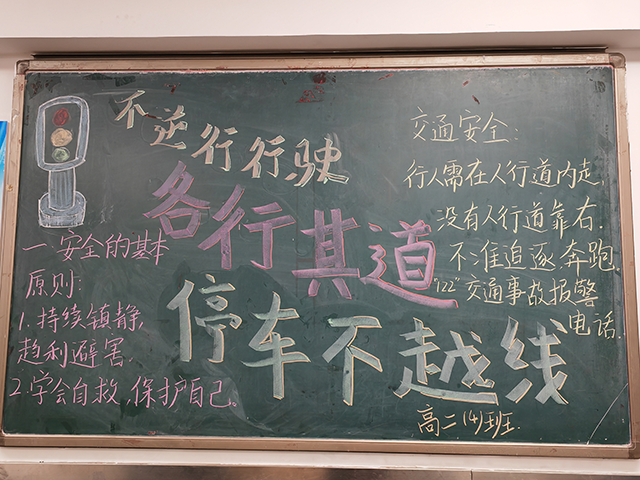 不逆行行驶
各行其道
停车不越线
一.安全的基本
原则:
1.持续镇静,
趋利避害.
2.学会自救,保护自己。
交通安全:
行人需在人行道内走,
没有人行道靠右.
不准追逐,奔跑.
"122"交通事故报警
电话.
高二(4)班班.